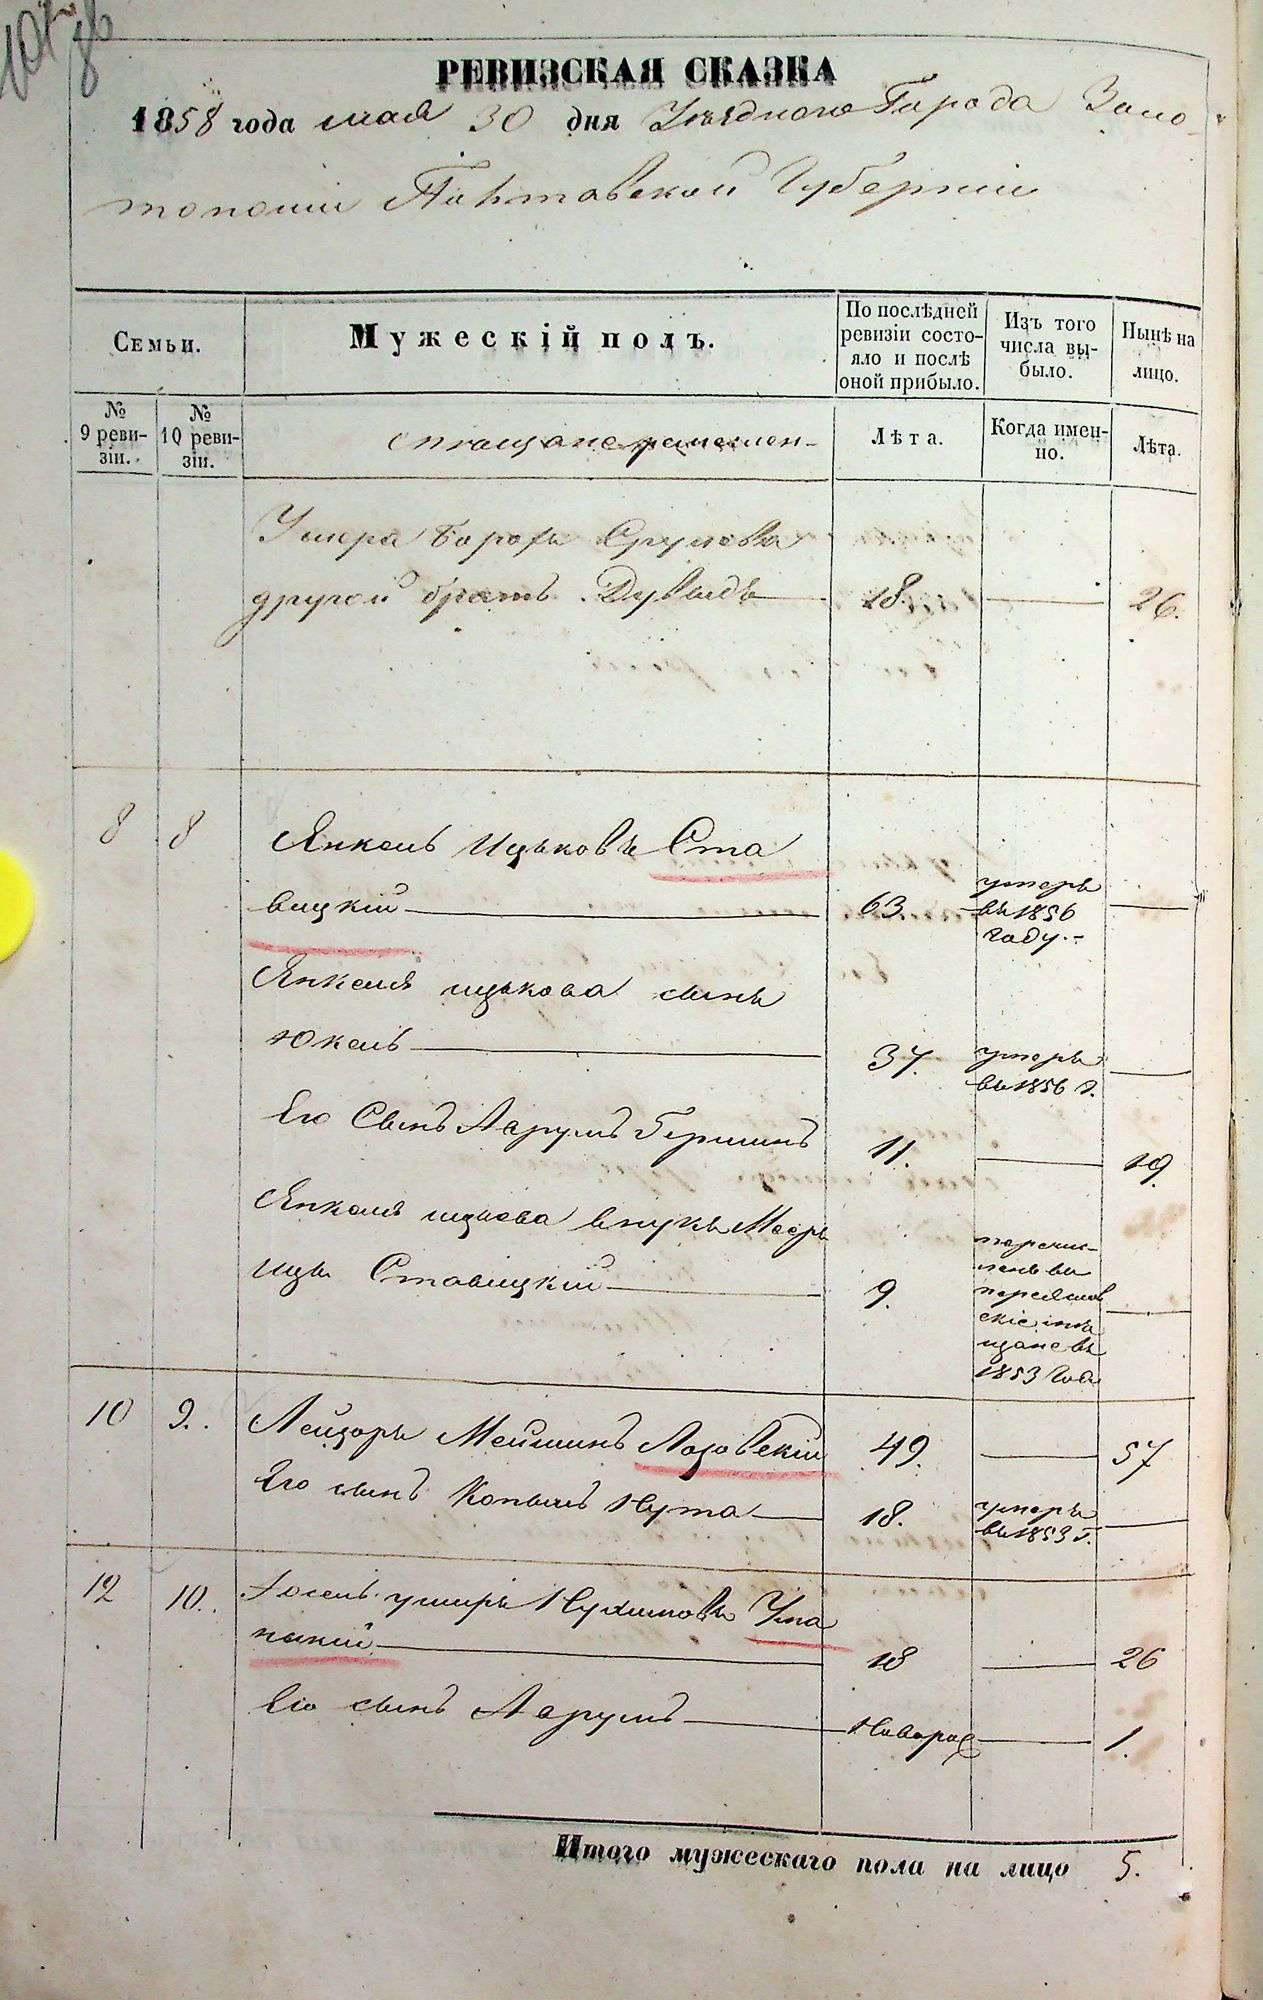 РЕВИЗСКАЯ СКАЗКА
1858 года мая 30 дня Уѣзднаго Города Золо
тоноши Полтавской Губерніи
Семьи.
Мужескій полъ.
По послѣдней ревизіи состо-
яло и послѣ оной прибыло.
Изъ того числа вы-
было.
Нынѣ на лицо.
№ 9 реви-
зіи.
№ 10 реви-
зіи.
Лѣта.
Когда имен-
но.
Лѣта.
другой братъ Дувидъ 18. 26.
8 8 Янкель Ицьковъ Ста
вицкій 63. умеръ въ 1856 году.
Янкеля ицькова сынъ
Юкель 37. умеръ въ 1856 г.
Его Сынъ Лейзеръ 11. 19.
Янкеля ицькова внукъ Мееръ
Ицъ Ставицкій 9. перечис-
ленъ въ
переяслов
скіе мѣ
щане въ
1853 Году
10 9. Лейзоръ Мейшинъ Лозовскій 49. 57
Его сынъ Копыль Нута 18. умеръ въ 1853 г.
12 10. Іосель ушеръ Нухимовъ Ума
нскій 18 26
Его сынъ Новорож 1.
Итого мужескаго пола на лицо 5.